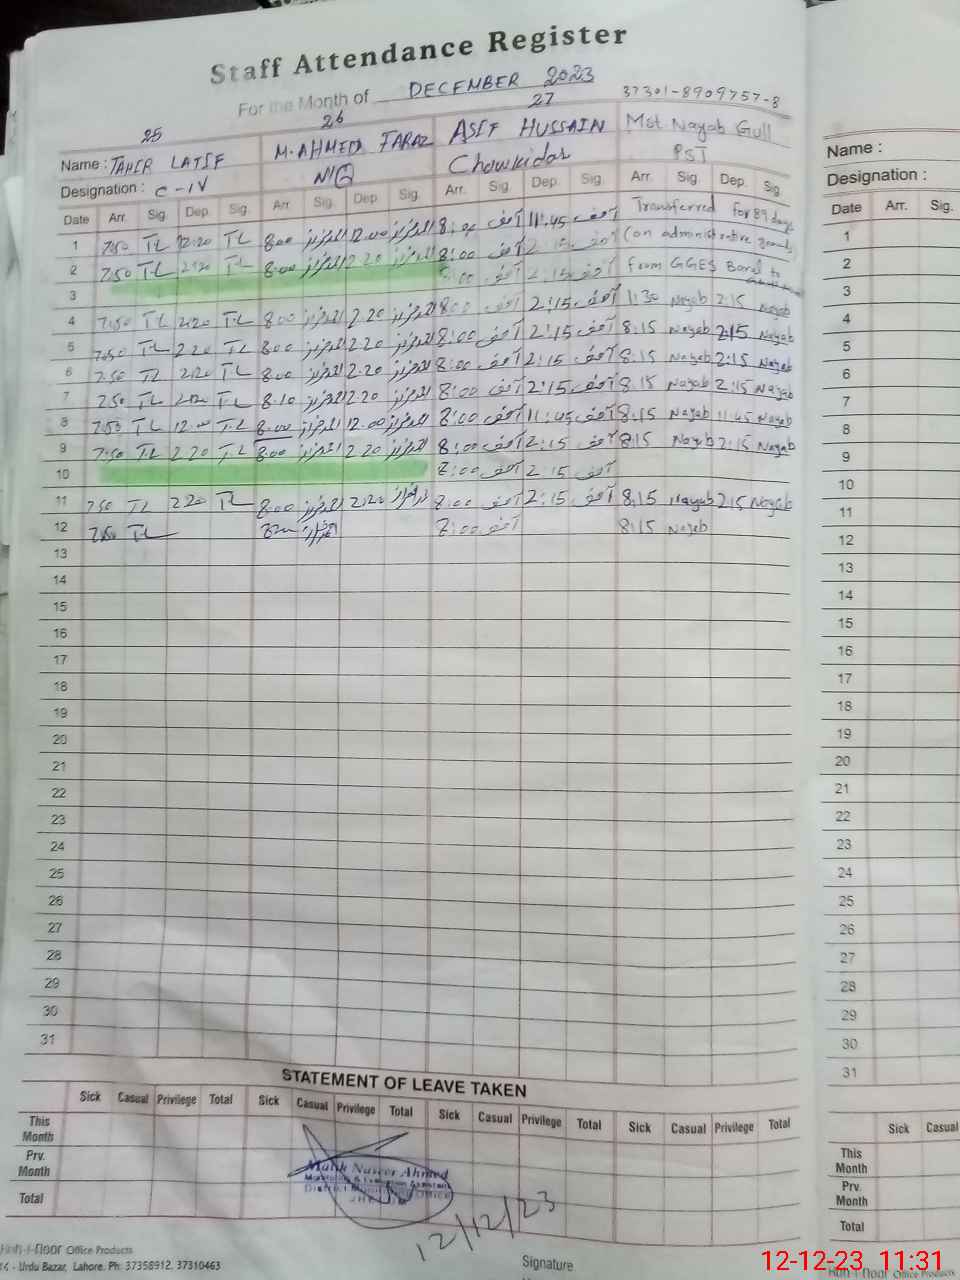 Staff Attendance Register
For the Month of DECEMBER 2023
25 26 27 37301-8909757-8
Name : TAHIR LATIF M. AHMED FARAZ ASIF HUSSAIN Mst. Nayab Gull
Designation : C-IV N/Q Chowkidar PST
Date Arr. Sig. Dep. Sig. Arr. Sig. Dep. Sig. Arr. Sig. Dep. Sig. Arr. Sig. Dep. Sig.
1 7:50 TL 12:20 TL 8:00 12:00 8:00 آصف 11:45 آصف Transferred for 89 days
2 7:50 TL 2:20 TL 8:00 2:20 8:00 آصف 2:15 آصف (on administrative grounds)
3 8:00 آصف 2:15 آصف from GGES to
4 7:50 TL 2:20 TL 8:00 2:20 8:00 آصف 2:15 آصف 1:30 Nayab 2:15 Nayab
5 7:50 TL 2:20 TL 8:00 2:20 8:00 آصف 2:15 آصف 8:15 Nayab 2:15 Nayab
6 7:50 TL 2:20 TL 8:00 2:20 8:00 آصف 2:15 آصف 8:15 Nayab 2:15 Nayab
7 7:50 TL 2:20 TL 8:10 2:20 8:00 آصف 2:15 آصف 8:15 Nayab 2:15 Nayab
8 7:50 TL 12:00 TL 8:00 12:00 8:00 آصف 11:45 آصف 8:15 Nayab 11:45 Nayab
9 7:50 TL 2:20 TL 8:00 2:20 8:00 آصف 2:15 آصف 8:15 Nayab 2:15 Nayab
10 8:00 آصف 2:15 آصف
11 7:50 TL 2:20 TL 8:00 2:20 8:00 آصف 2:15 آصف 8:15 Nayab 2:15 Nayab
12 7:50 TL 8:00 آصف 8:15 Nayab
13
14
15
16
17
18
19
20
21
22
23
24
25
26
27
28
29
30
31
STATEMENT OF LEAVE TAKEN
Sick Casual Privilege Total Sick Casual Privilege Total Sick Casual Privilege Total Sick Casual Privilege Total
This Month
Prv. Month
Total
Malik Naseer Ahmed
Monitoring & Evaluation Assistant
District Monitoring Office
JHELUM
12/12/23
Office Products
Urdu Bazar, Lahore. Ph: 37358912, 37310463
Signature
Name :
Designation :
Date Arr. Sig.
1
2
3
4
5
6
7
8
9
10
11
12
13
14
15
16
17
18
19
20
21
22
23
24
25
26
27
28
29
30
31
Sick Casual
This Month
Prv. Month
Total
Office Products
12-12-23 11:31